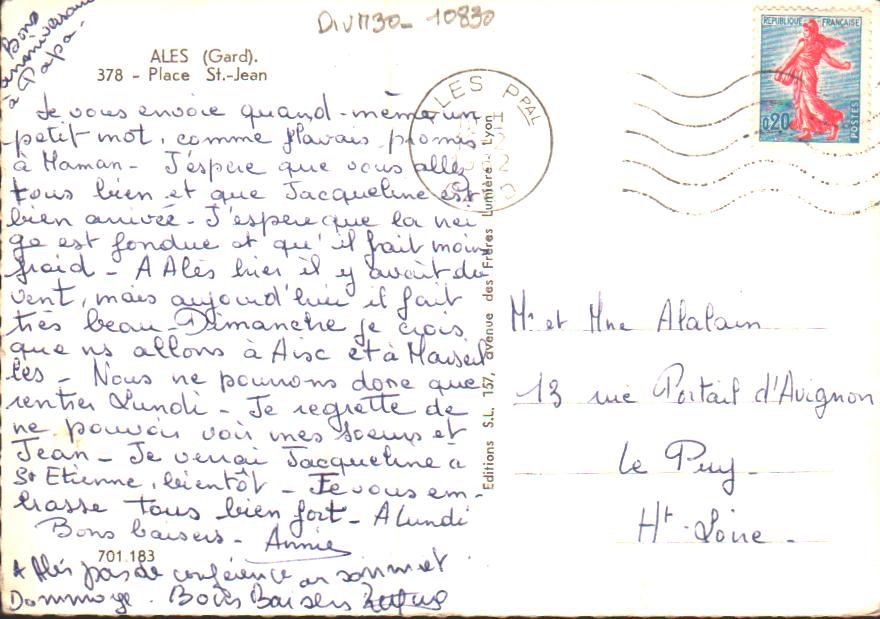 DIVM30- 10830
Bons
anniversaire
à Papa.
ALES (Gard).
378 - Place St.-Jean
Je vous envoie quand-même un
petit mot, comme j'avais promis
à Maman - J'espère que vous allez
tous bien et que Jacqueline est
bien arrivée - J'espère que la nei
ge est fondue et qu'il fait moins
froid - A Alès hier il y avait du
vent, mais aujourd'hui il fait
très beau - Dimanche je crois
que ns allons à Aisc et à Marseil
les - Nous ne pourrons donc que
rentrer Lundi - Je regrette de
ne pouvoir voir mes soeurs et
Jean - Je verrai Jacqueline à
St Etienne, bientôt - Je vous em-
brasse tous bien fort - A Lundi
Bons baisers - Annie
701.183
A Alès pas de conférence au sommet
Dommage. Bons Baisers
Editions S.L. 157, avenue des Frères Lumière - Lyon
ALES PPAL
REPUBLIQUE FRANÇAISE
0,20
POSTES
Mr et Mme Alalain
13 rue Portail d'Avignon
Le Puy -
Ht-Loire -